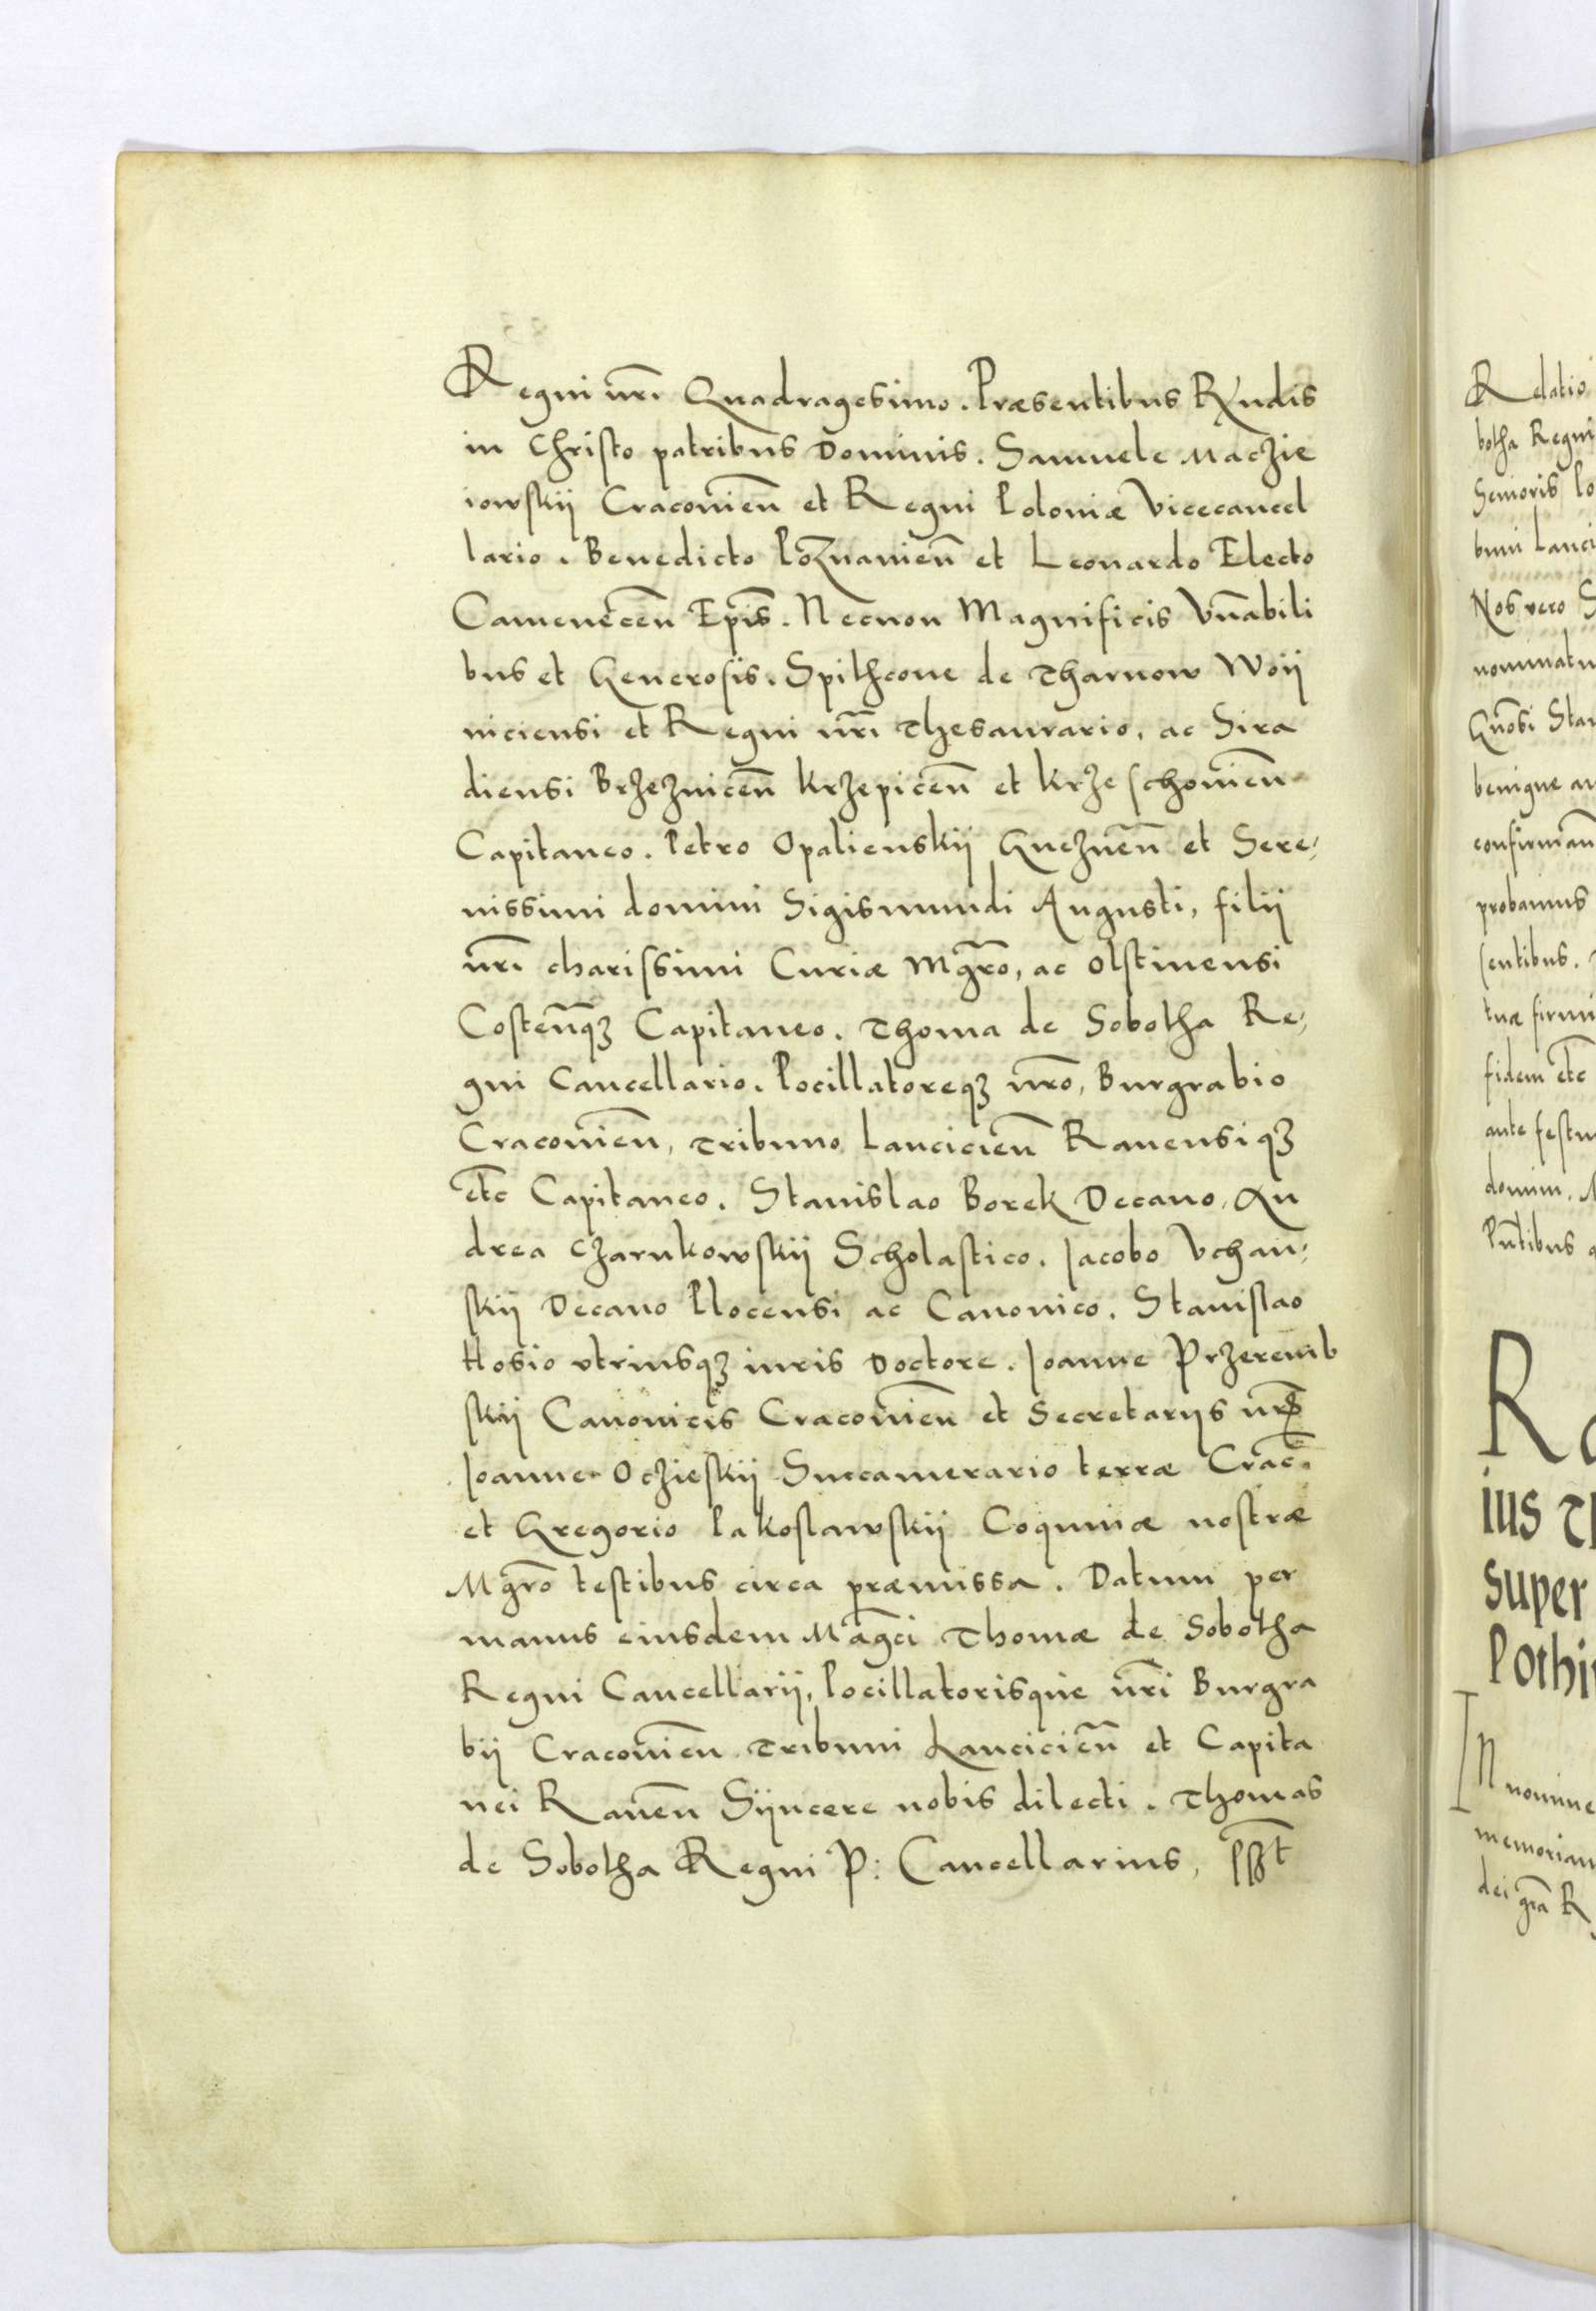 Regni nr̃i Quadragesimo. Præsentibus Rṽndis
in Christo patribus Dominis. Samuele Maczie
iowskij Cracovień et Regni Poloniæ Vicecancel
lario. Benedicto Poznanień et Leonardo Electo
Cameneceń Ep̃is. Necnon Magnificis Vñabili
bus et Generosis. Spithcone de Tharnow Woij
niciensi et Regni nr̃i Thesaurario, ac Sira
diensi Brzezniceń Krzepiceń et Krzeschovień
Capitaneo. Petro Opalienskij Gnezneń et Sere,
nissimi domini Sigismundi Augusti, filij
nr̃i charissimi Curiæ Mgr̃o, ac Olstinensi
Costeñqꝫ Capitaneo. Thoma de Sobotha Re,
gni Cancellario. Pocillatoreqꝫ nr̃o, Burgrabio
Cracovień, Tribuno Lancicień Ravensiqꝫ
et̃c Capitaneo. Stanislao Borek Decano, An
drea Czarnkowskij Scholastico. Jacobo Vchan,
skij Decano Plocensi ac Canonico. Stanislao
Hosio vtriusqꝫ iuris Doctore. Joanne Przeremb
skij Canonicis Cracovień et Secretarijs nr̃is
Joanne Oczieskij Succamerario terræ Crac̃.
et Gregorio Pakoslawskij Coquinæ nostræ
Mgr̃o testibus circa præmissa. Datum per
manus eiusdem Mag̃ci Thomæ de Sobotha
Regni Cancellarij, Pocillatorisque nr̃i Burgra
bij Cracovień Tribuni Lancicień et Capita
nei Raveń Sijncere nobis dilecti. Thomas
de Sobotha Regni P: Cancellarius, sst
Relatio
botha Regni
Senioris Po
buni Lanci
Nos vero S
nominatu
Gñosi Sta
benigne an
confirman
probamus
sentibus.
tuæ firmi
fidem et̃c
ante festu
domini. M
Pñtibus q
R
ius T
super
Pothi
IN nomine
memoriam
dei gr̃a R